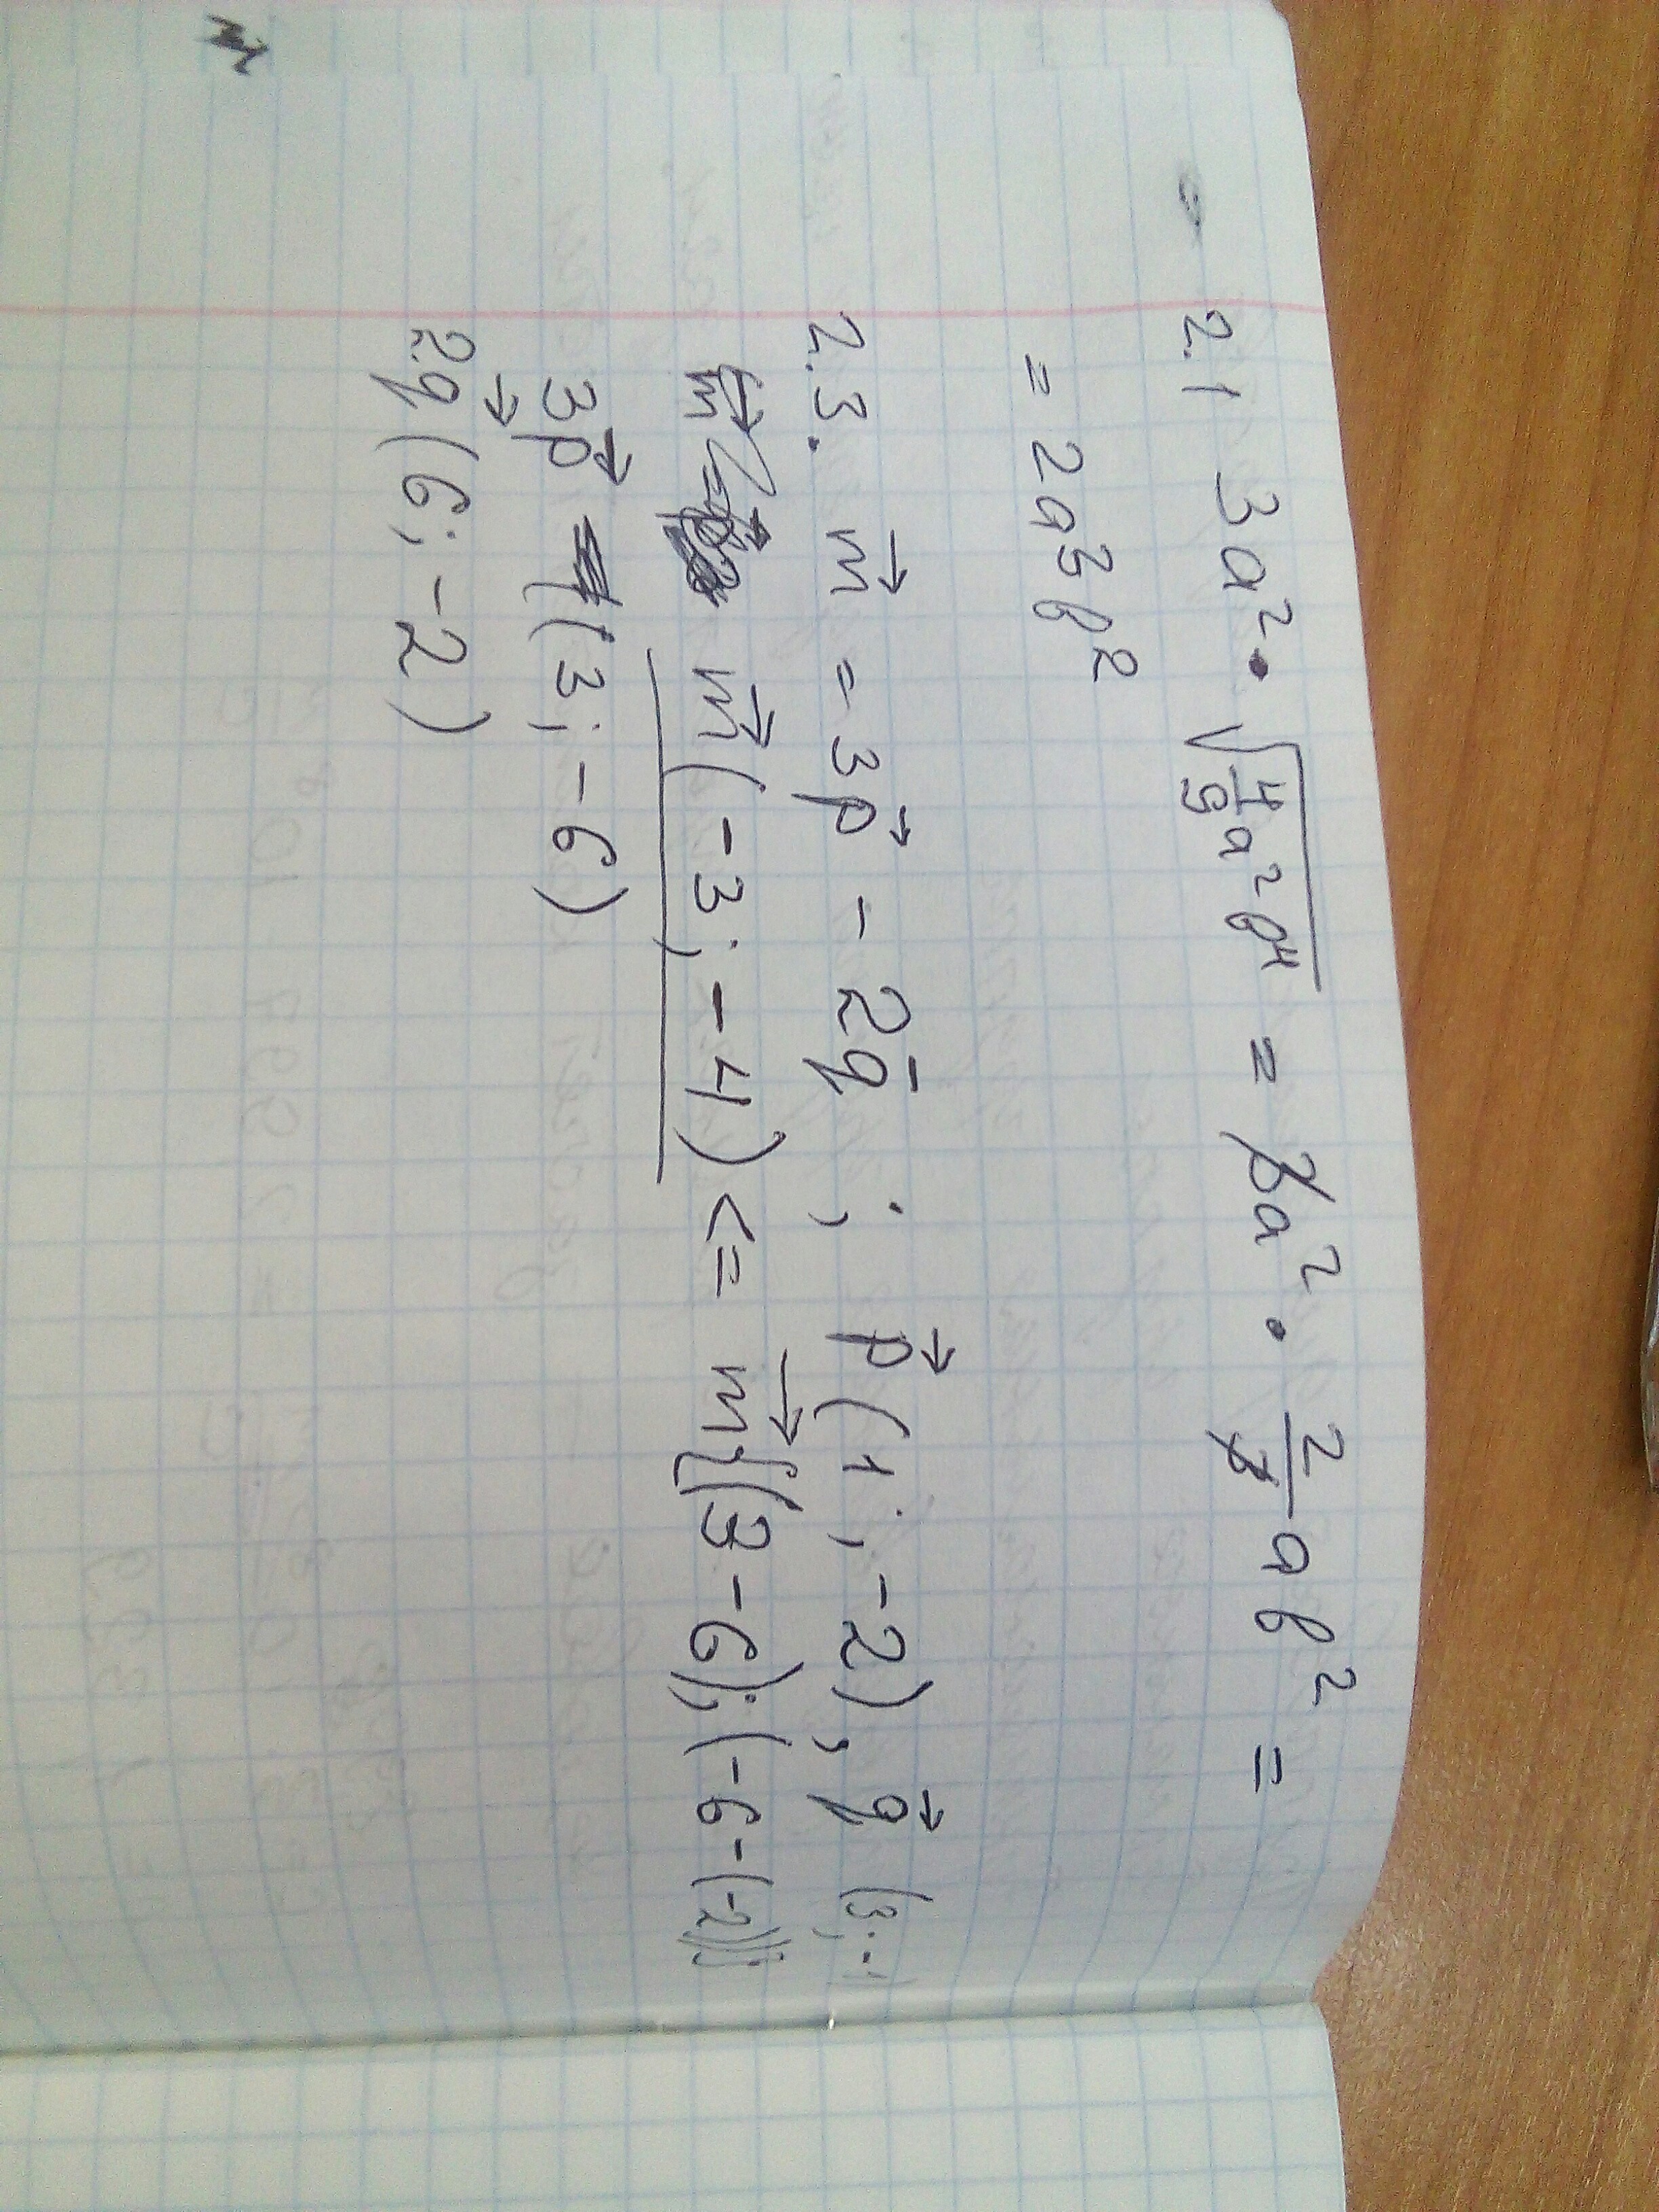 2.1 3a² • √(4/9 a²b⁴) = 3a² • 2/3 ab² =
= 2a³b²
2.3. m⃗ = 3p⃗ - 2q̄ ; p⃗ (1; -2), q⃗ (3; -1
m⃗(-3; -4) <= m⃗((3-6); (-6-(-2));
3p⃗ (3; -6)
2q⃗ (6; -2)